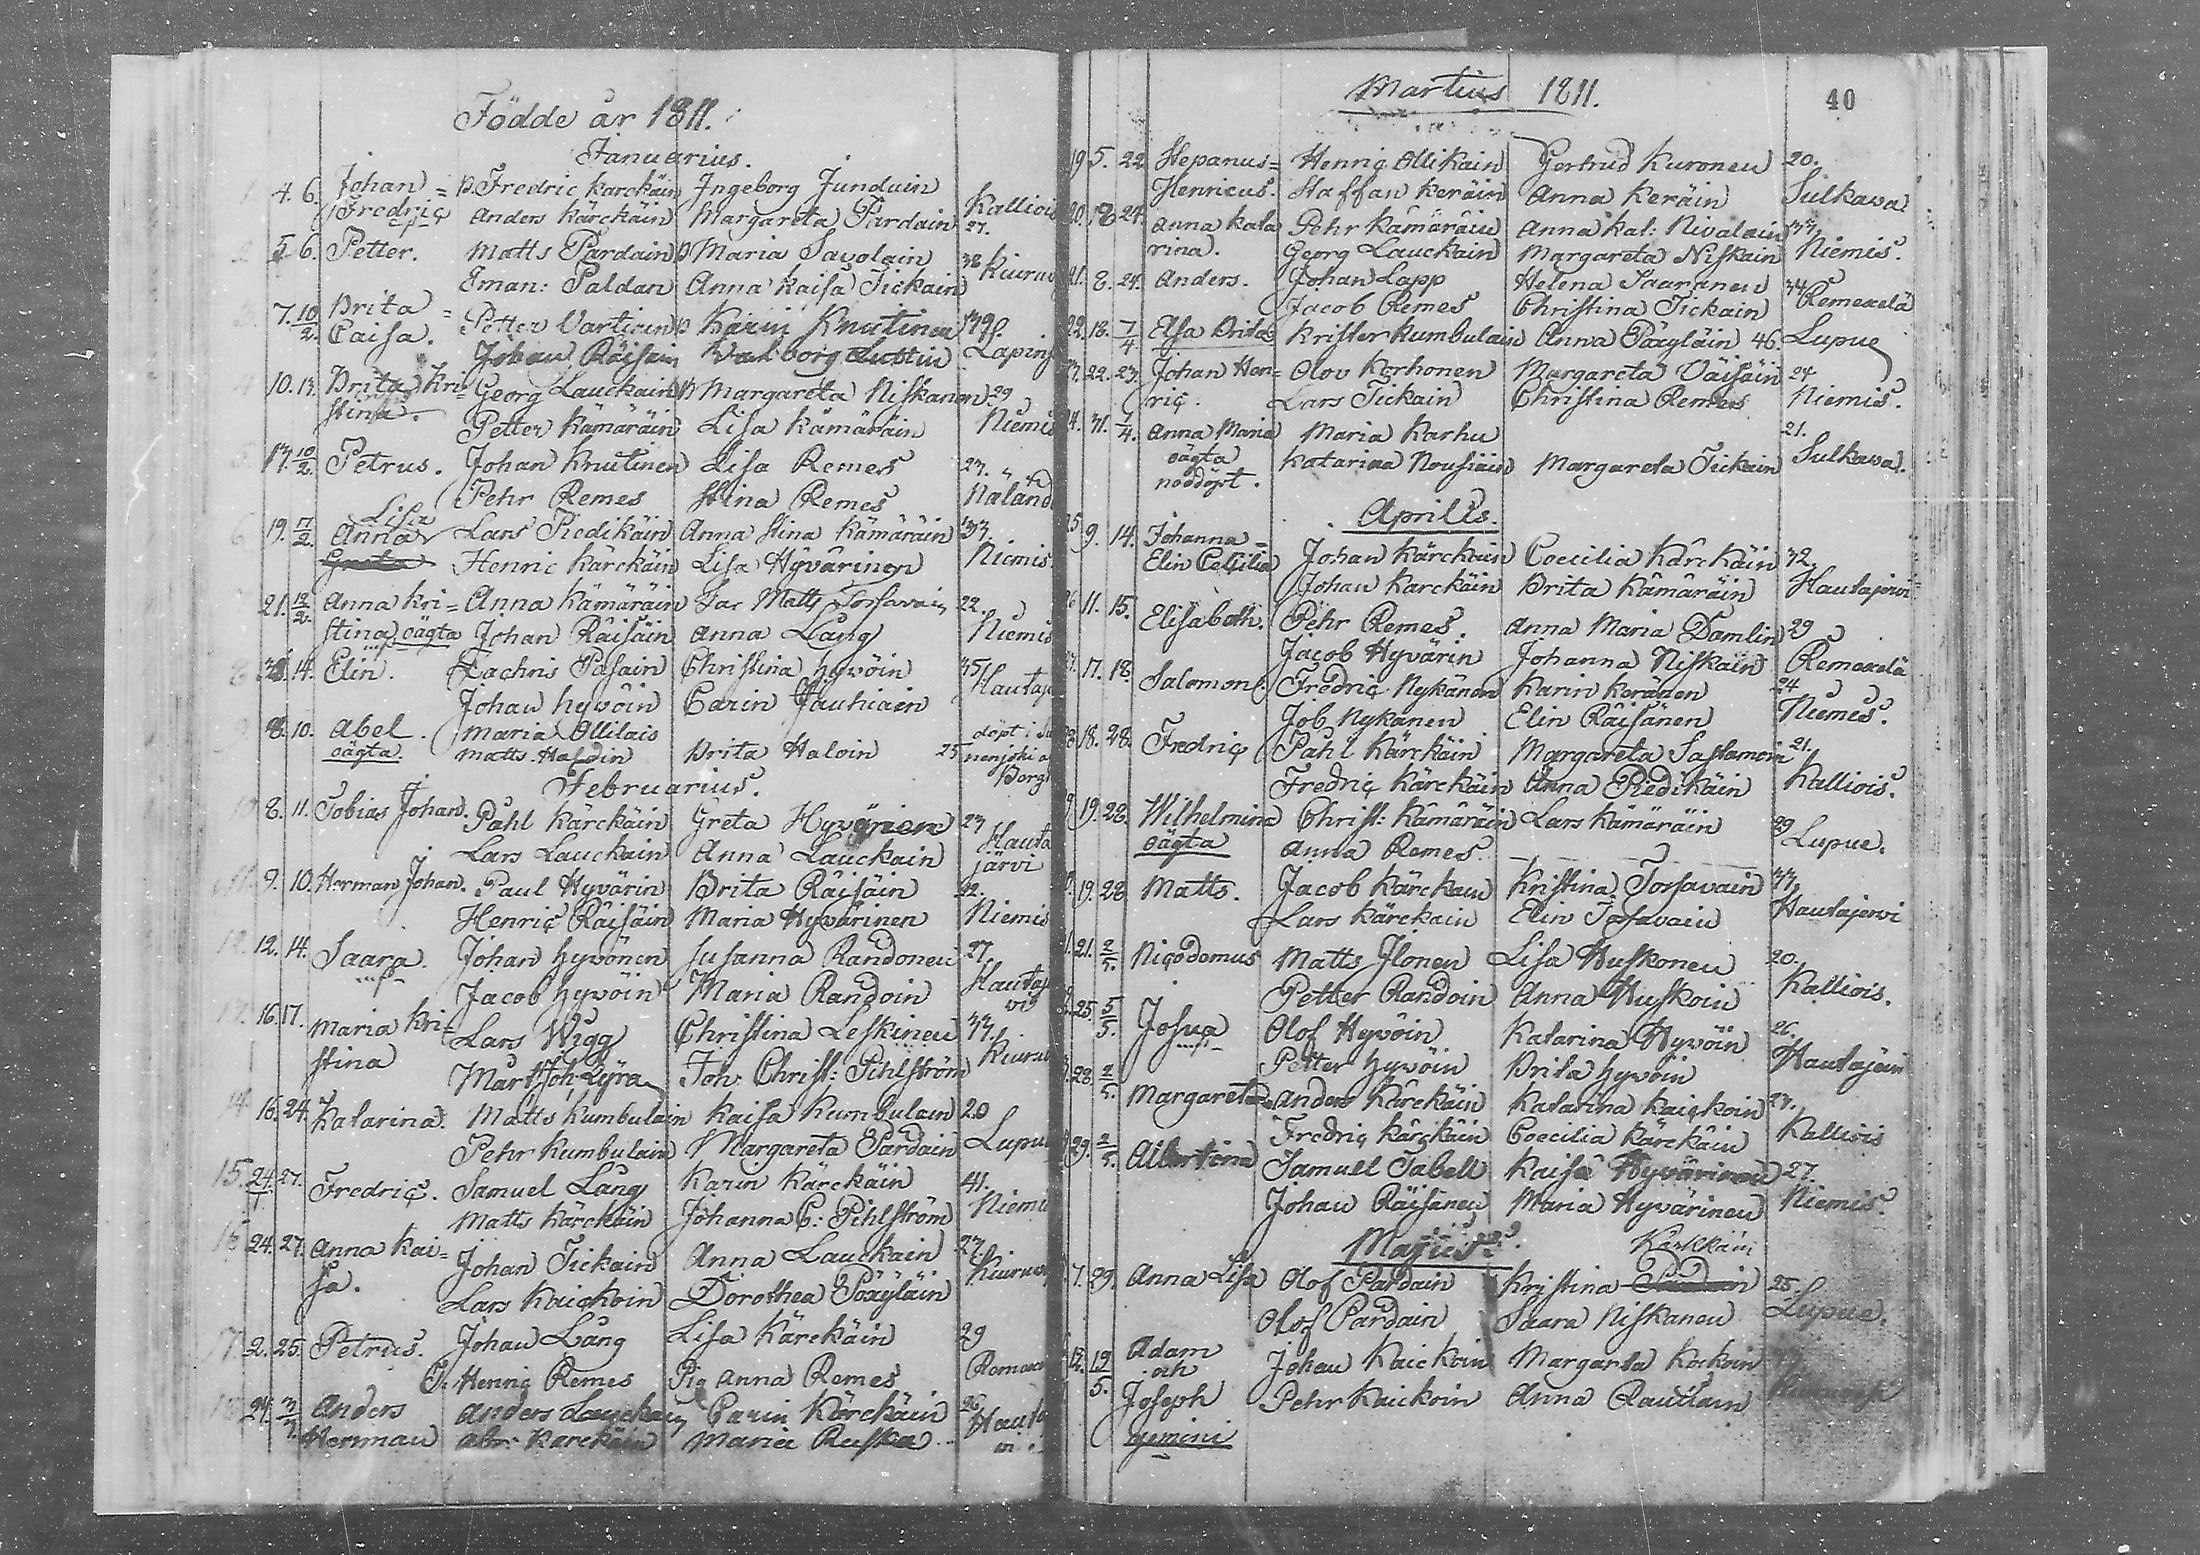 Födde år 1811.
Januarius.
1. 4. 6. Johan = B. Fredric Karckäin Ingeborg Junduin
Fredric Anders Kärckäin Margareta Pardain 27. Kalliois
2. 5 6. Petter. Matts Pardain B Maria Savolain 38
Eman: Paldan Anna Kaisa Tickain Kiuruv
7. 10/2. Brita = Petter Vartiain B Karin Knutinen
Caisa. Johan Räisäin Valborg Lapins
4 10. 13. Brita Kri= Georg Lauckain B Margareta Niskanen 29
stina. Petter Kämäräin Lisa Kämäräin Niemis
5. 13. 10/2. Petrus. Johan Knutinen Lisa Remes 23.
Pehr Remes Stina Remes Näländ
Lisa
6 19. 17/2. Anna Lars Piedikäin Anna Stina Kämäräin 33.
Greta Henric Kärckäin Lisa Hyvärinen Niemis
21. 12/2. Anna Kri= Anna Kämäräin Far Matts Torsavain 22.
stina oägta Johan Räisäin Anna Lång Niemis
8 14. Elin. Zachris Pasain Christina Hyvöin 35
Johan Hyvöin Carin Jauhiain Hautaj
9 8. 10. Abel. Maria Ollilais döpt i
oägta. Matts Haloin Brita Haloin 25
Februarius.
10 8. 11. Tobias Johan. Påhl Kärckäin Greta Hyvönen 27
Lars Lauckain Anna Lauckain Hauta
järvi
11. 9. 10. Herman Johan. Paul Hyvärin Brita Räisäin 42.
Henric Räisäin Maria Hyvärinen Niemis
12. 12. 14. Saara. Johan Hyvönen Susanna Randonen 27.
Jacob Hyvöin Maria Randoin Hautaj
vi
13. 16. 17. Maria Kri= Lars Wigg Christina Leskinen 33.
stina Mart Joh. Lyra Joh: Christ: Pihlström Kiuruv
14 16. 24. Katarina. Matts Kumbulain Kaisa Kumbulain 20
Pehr Kumbulain Margareta Pardain Lupue
15. 24. 27. Fredric. Samuel Lång Karin Kärckäin 41.
Matts Kärckäin Johanna C: Pihlström Niemis
16 24. 27. Anna Kai= Johan Tickain Anna Lauckain 27
sa. Lars Kaickoin Dorothea Pöxyläin Kiuruv
17. 2. 25. Petrus. Johan Lång Lisa Kärckäin 29
J. Henric Remes Pig Anna Remes Remese
18. 24. Anders Anders Lauckain Carin Kärckäin 26
Herman Abr: Karckäin Maria Ruska Hauta
Martius 1811. 40
19 5. 22 Stepanus= Henric Ollikain Gertrud Kuronen 20.
Henricus. Staffan Keräin Anna Keräin Sulkava
20. 18 24. Anna Kata Pehr Kämäräin Anna Kat: Nivalain 33.
rina. Georg Lauckain Margareta Niskain Niemis.
21. 8. 24. Anders. Johan Lapp Helena Saaranen 34
Jacob Remes Christina Tickain Remexelä
22. 18. 7/4 Elsa Brita Krister Kumbulain Anna Päxyläin 46. Lupue
23. 22. 23. Johan Hen= Olov Korhonen Margareta Väisäin 24
ric. Lars Tickain Christina Remes Niemis.
24. 31. 7/4. Anna Maria Maria Karhu 21.
oägta Katarina Nousiäin Margareta Tickain Sulkava.
nöddöpt.
Aprilis.
25 9. 14. Johanna=
Elin Cecilia Johan Kärckäin Coecilia Kärckäin 32.
Johan Karckäin Brita Kämäräin Hautajervi
26 11. 15. Elisabeth. Pehr Remes. Anna Maria Damlin 29
Jacob Hyvärin Johanna Niskain Remexelä
27. 17. 18. Salomon. Fredric Nykänen Karin Keränen 24
Job Nykänen Elin Räisänen Niemis.
28 18. 28. Fredric Påhl Kärckäin Margareta Sastamoin 21.
Fredric Kärckäin Anna Piedikäin Kalliois.
29 19. 28. Wilhelmina Christ: Kämäräin Lars Kämäräin 29
oägta Anna Remes Lupue.
19. 28 Matts. Jacob Kärckain Kristina Torsavain 33
Lars Kärckain Elin Torsavain Hautajervi
21. 2/5. Nicodemus Matts Ilonen Lisa Huskonen 20.
Petter Randoin Anna Huskoin Kalliois.
25. 5/5. Josua Olof Hyvöin Katarina Hyvöin 26.
Petter Hyvöin Brita Hyvöin Hautajärvi
28. 2/5. Margareta Anders Kärckäin Katarina Kaickoin 27.
Fredric Kärckäin Coecilia Kärckäin Kalliois
29. 2/5. Albertina Samuel Tabell Kaisa Hyvärinen 27.
Johan Räisänen Maria Hyvärinen Niemis.
Majus. Kärkkäin
7. 29. Anna Lisa Olof Pardain Kristina Pardain 25.
Olof Pardain Saara Niskanen Lupue.
12. 19/5. Adam
och Johan Kaickoin Margareta Kockoin
Joseph Pehr Kaickoin Anna Rautiain
gemini